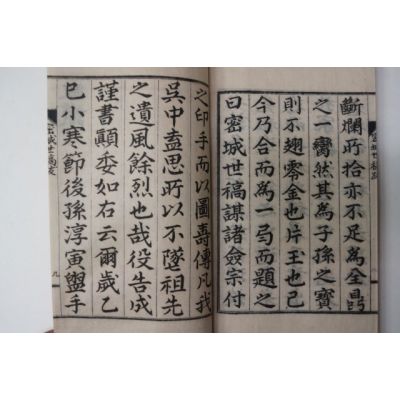 斷爛所拾亦不足為全鼎
之一臠然其為子孫之寶
則不翅零金也片玉也已
今乃合而為一弓而題之
曰密城世稿謀諸僉宗付
之印手而以圖壽傳凡我
吳中盍思所以不墜祖先
之遺風餘烈也哉役告成
謹書顚委如右云爾歲乙
巳小寒節後孫淳寅盥手
密城世稿跋
九